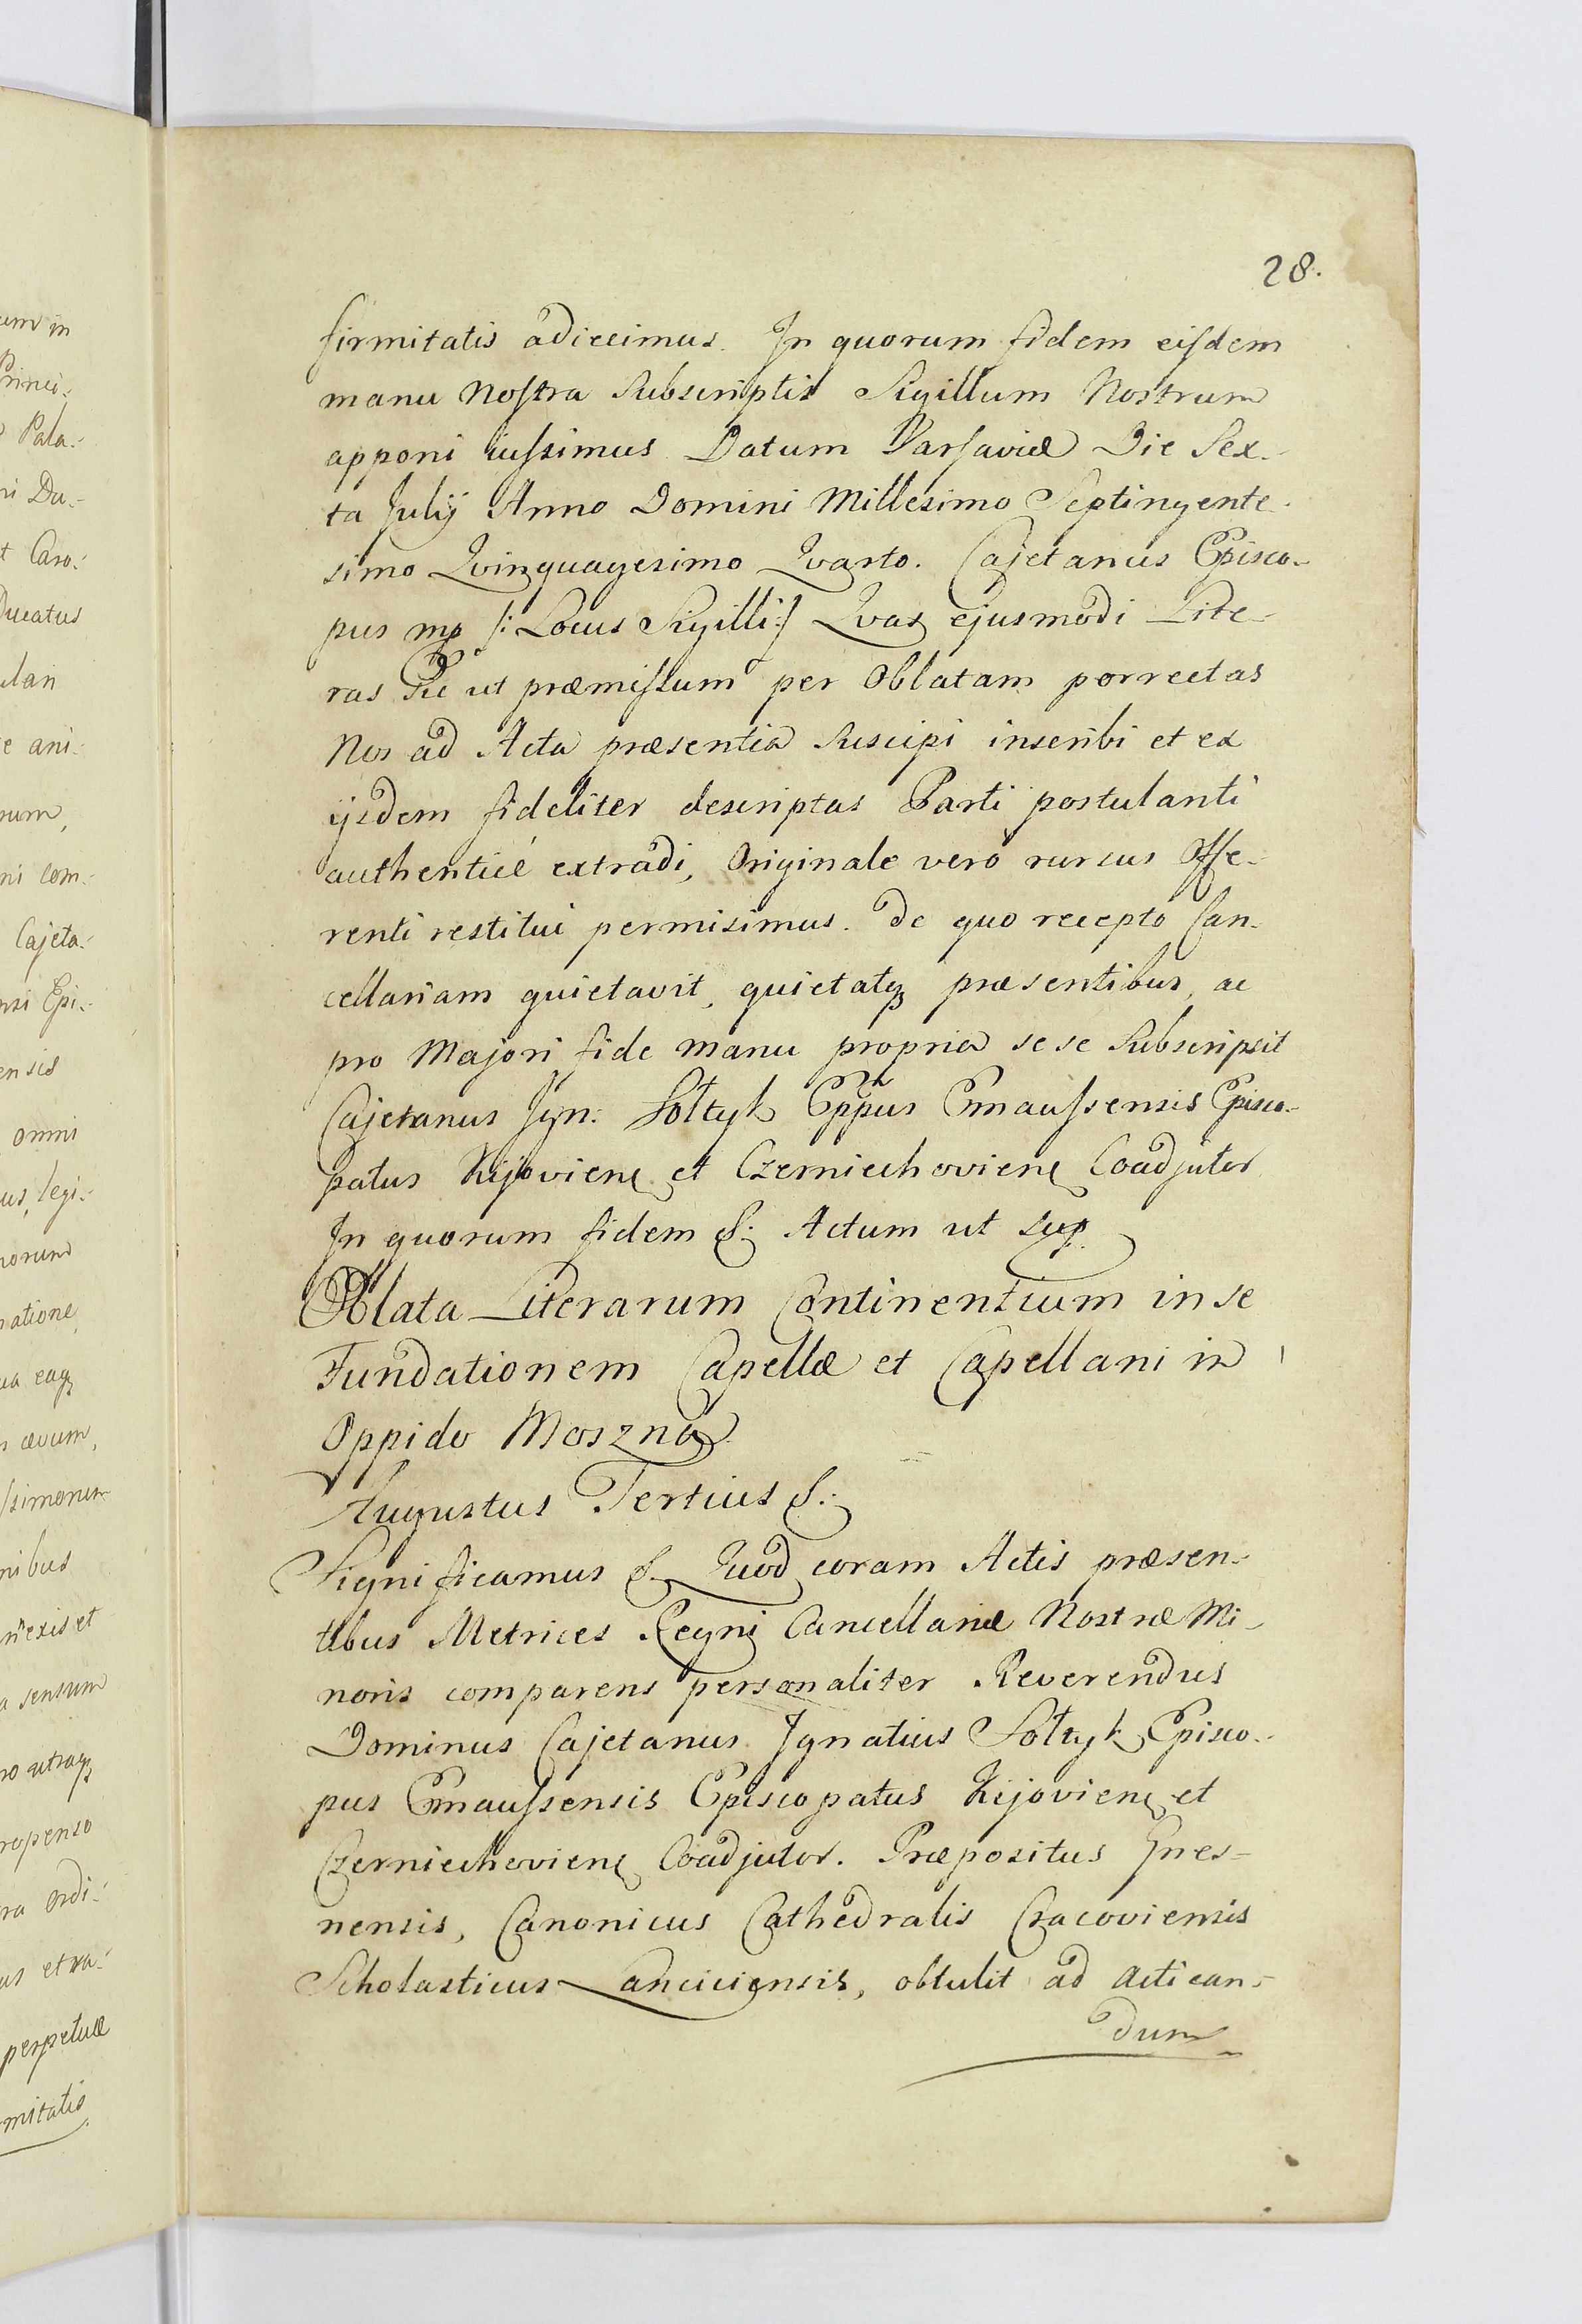 28.
firmitatis adiecimus. In quorum fidem eisdem
manu Nostra Subscriptis Sigillum Nostrum
apponi iussimus Datum Varsaviæ Die Sex-
ta Julij Anno Domini Millesimo Septingente-
simo Qvinquagesimo Qvarto. Cajetanus Episco-
pus mp /: Locus Sigilli :/ Qvas ejusmodi Lite-
ras Sic ut præmissum per Oblatam porrectas
Nos ad Acta præsentia Suscipi inscribi et ex
ijsdem fideliter descriptas Parti postulanti
authenticè extradi, Originale verò rursus Offe-
renti restitui permisimus. De quo recepto Can-
cellariam quietavit, quietatq præsentibus, ac
pro Majori fide manu propria sese Subscripsit
Cajetanus Ign: Sołtyk Eppus Emaussensis Episco-
patus Kijovien et Czerniechovien Coadjutor
In quorum fidem &. Actum ut sup
Oblata Literarum Continentium in se
Fundationem Capellæ et Capellani in
Oppido Moszna
Augustus Tertius &.
Significamus &. Quod coram Actis præsen-
tibus Metrices Regni Cancellariæ Nostræ Mi-
noris comparens personaliter Reverendus
Dominus Cajetanus Ignatius Sołtyk Episco-
pus Emaussensis Episcopatus Kijovien et
Czerniechovien Coadjutor. Præpositus Gnes-
nensis, Canonicus Cathedralis Cracoviensis
Scholasticus Lanciciensis, obtulit ad actican-
dum
um in
Princi-
Pala-
ni Du-
t Caro-
Ducatus
ulari
e ani-
rum,
ni com-
Cajeta-
nsi Epi-
ensis
omni
us, legi-
norum
natione
ua eaq
s ævum,
ssimorum
nibus
nexis et
a sensum
ro utraq
ropenso
ra Ordi-
us et ra-
perpetuæ
mitatis